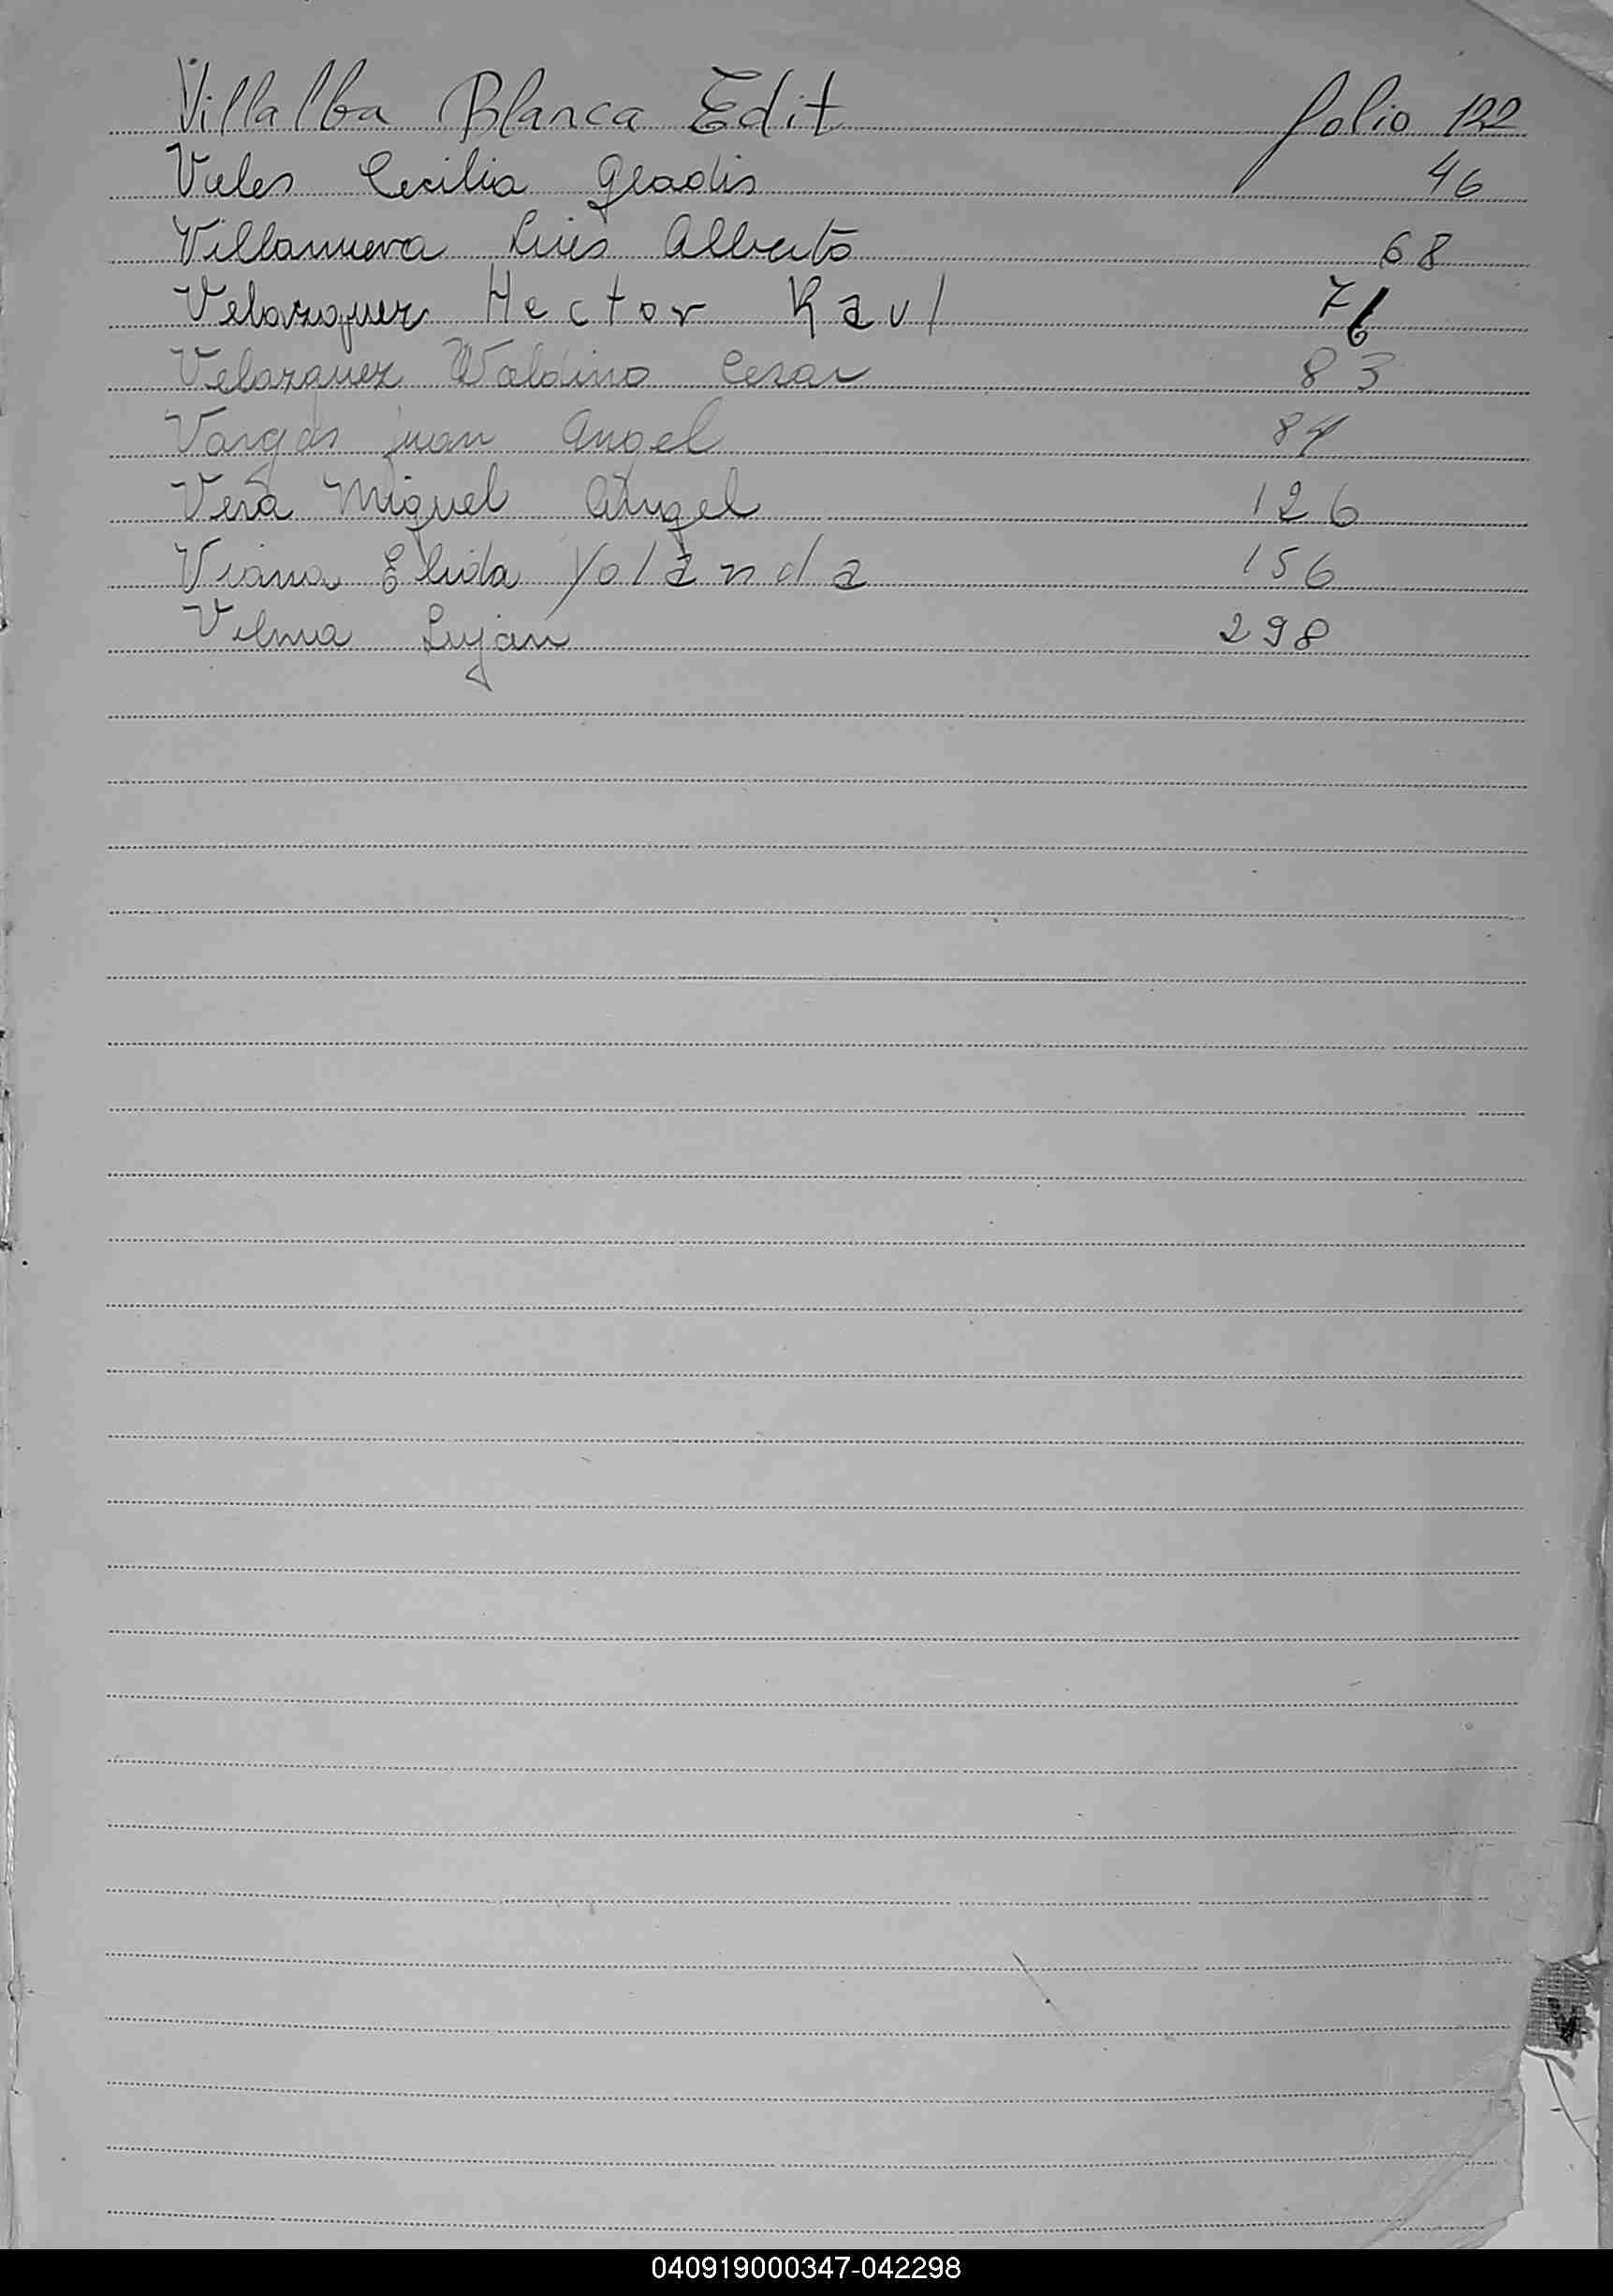 Villalba Blanca Edit folio 122
Veles Cecilia Gladis 46
Villanueva Luis Alberto 68
Velazquez Hector Raul 76
Velazquez Waldino Cesar 83
Vargas juan Angel 84
Vera Miguel Angel 126
Viana Elida Yolanda 156
Vilma Lujan 298
040919000347-042298